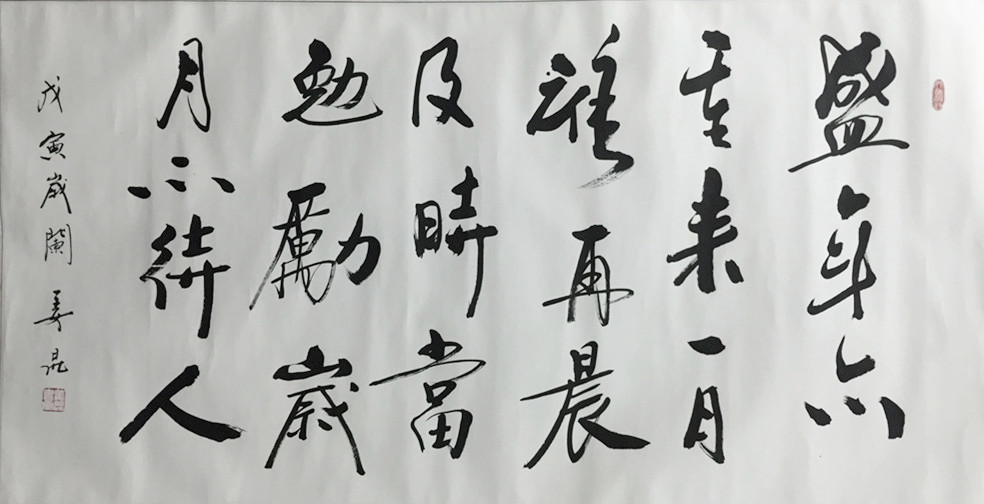 盛年不
重来一日
難再晨
及時當
勉勵歲
月不待人
戊寅歲闌 姜昆